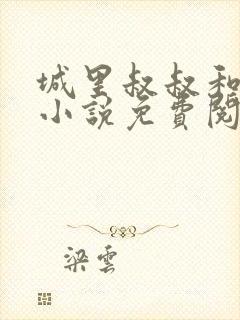 城里叔叔和
小说免費閱
梁雲